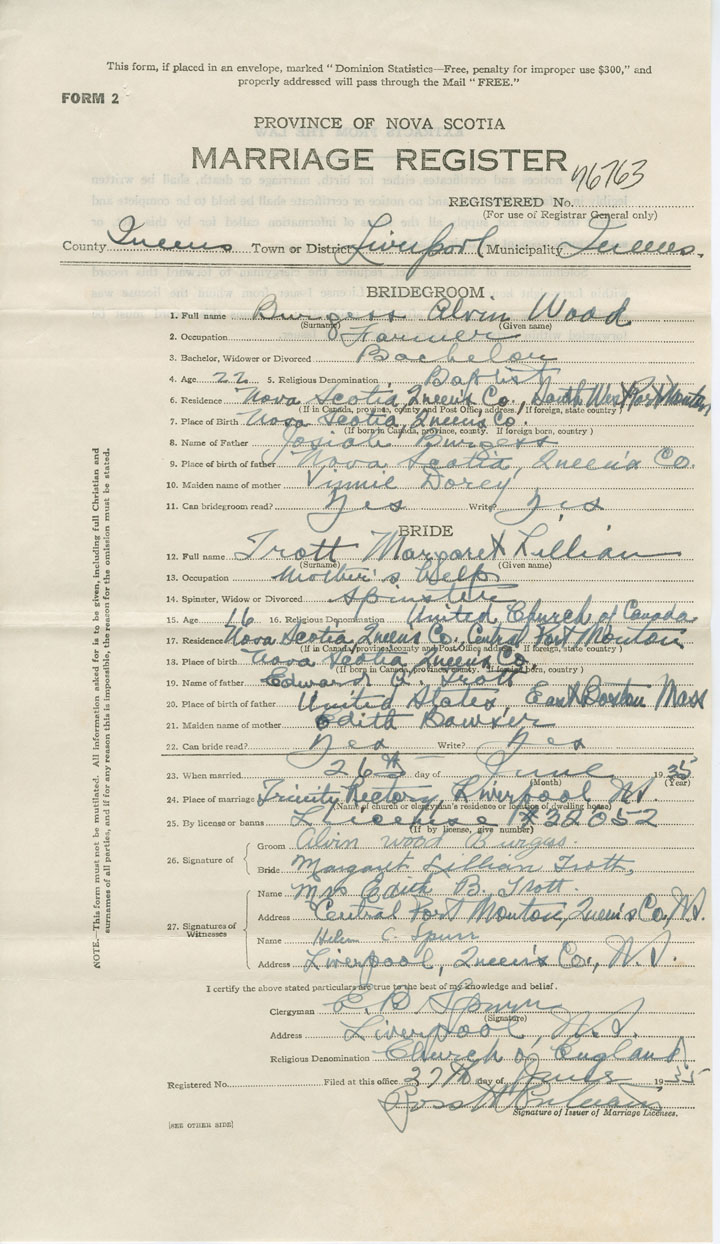 This form, if placed in an envelope, marked "Dominion Statistics—Free, penalty for improper use $300," and
properly addressed will pass through the Mail "FREE."
FORM 2
PROVINCE OF NOVA SCOTIA
MARRIAGE REGISTER
REGISTERED No. 76763
(For use of Registrar General only)
County Queens Town or District Liverpool Municipality Queens.
BRIDEGROOM
1. Full name Burgess Alvin Wood
(Surname) (Given name)
2. Occupation Farmer
3. Bachelor, Widower or Divorced Bachelor
4. Age 22 5. Religious Denomination Baptist
6. Residence Nova Scotia, Queen's Co., South West Port Mouton
(If in Canada, province, county and Post Office address. If foreign, state country)
7. Place of Birth Nova Scotia, Queen's Co.
(If born in Canada, province, county. If foreign born, country)
8. Name of Father Josiah Burgess
9. Place of birth of father Nova Scotia, Queen's Co.
10. Maiden name of mother Vinnie Dorey
11. Can bridegroom read? Yes Write? Yes
BRIDE
12. Full name Trott Margaret Lillian
(Surname) (Given name)
13. Occupation Mother's Help
14. Spinster, Widow or Divorced Spinster
15. Age 16 16. Religious Denomination United Church of Canada
17. Residence Nova Scotia, Queens Co., Central Port Mouton
(If in Canada, province, county and Post Office address. If foreign, state country)
18. Place of birth Nova Scotia, Queens Co.
(If born in Canada, province, county. If foreign born, country)
19. Name of father Edward R. Trott
20. Place of birth of father United States, East Boston Mass
21. Maiden name of mother Edith Bawxer
22. Can bride read? Yes Write? Yes
23. When married 26th day of June 1935
(Month) (Year)
24. Place of marriage Trinity Rectory Liverpool N.S.
(Name of church or clergyman's residence or location of dwelling house)
25. By license or banns License #32052
(If by license, give number)
26. Signature of
Groom Alvin wood Burgess.
Bride Margaret Lillian Trott.
27. Signatures of Witnesses
Name Mrs Edith B. Trott.
Address Central Port Mouton, Queen's Co, N.S.
Name Helen C. Spurr
Address Liverpool, Queen's Co., N.S.
I certify the above stated particulars are true to the best of my knowledge and belief.
Clergyman E. B. Spurr
(Signature)
Address Liverpool, N.S.
Religious Denomination Church of England
Registered No. Filed at this office 27th day of June 1935
Signature of Issuer of Marriage Licenses.
[SEE OTHER SIDE]
NOTE.—This form must not be mutilated. All information asked for is to be given, including full Christian and
surnames of all parties, and if for any reason this is impossible, the reason for the omission must be stated.